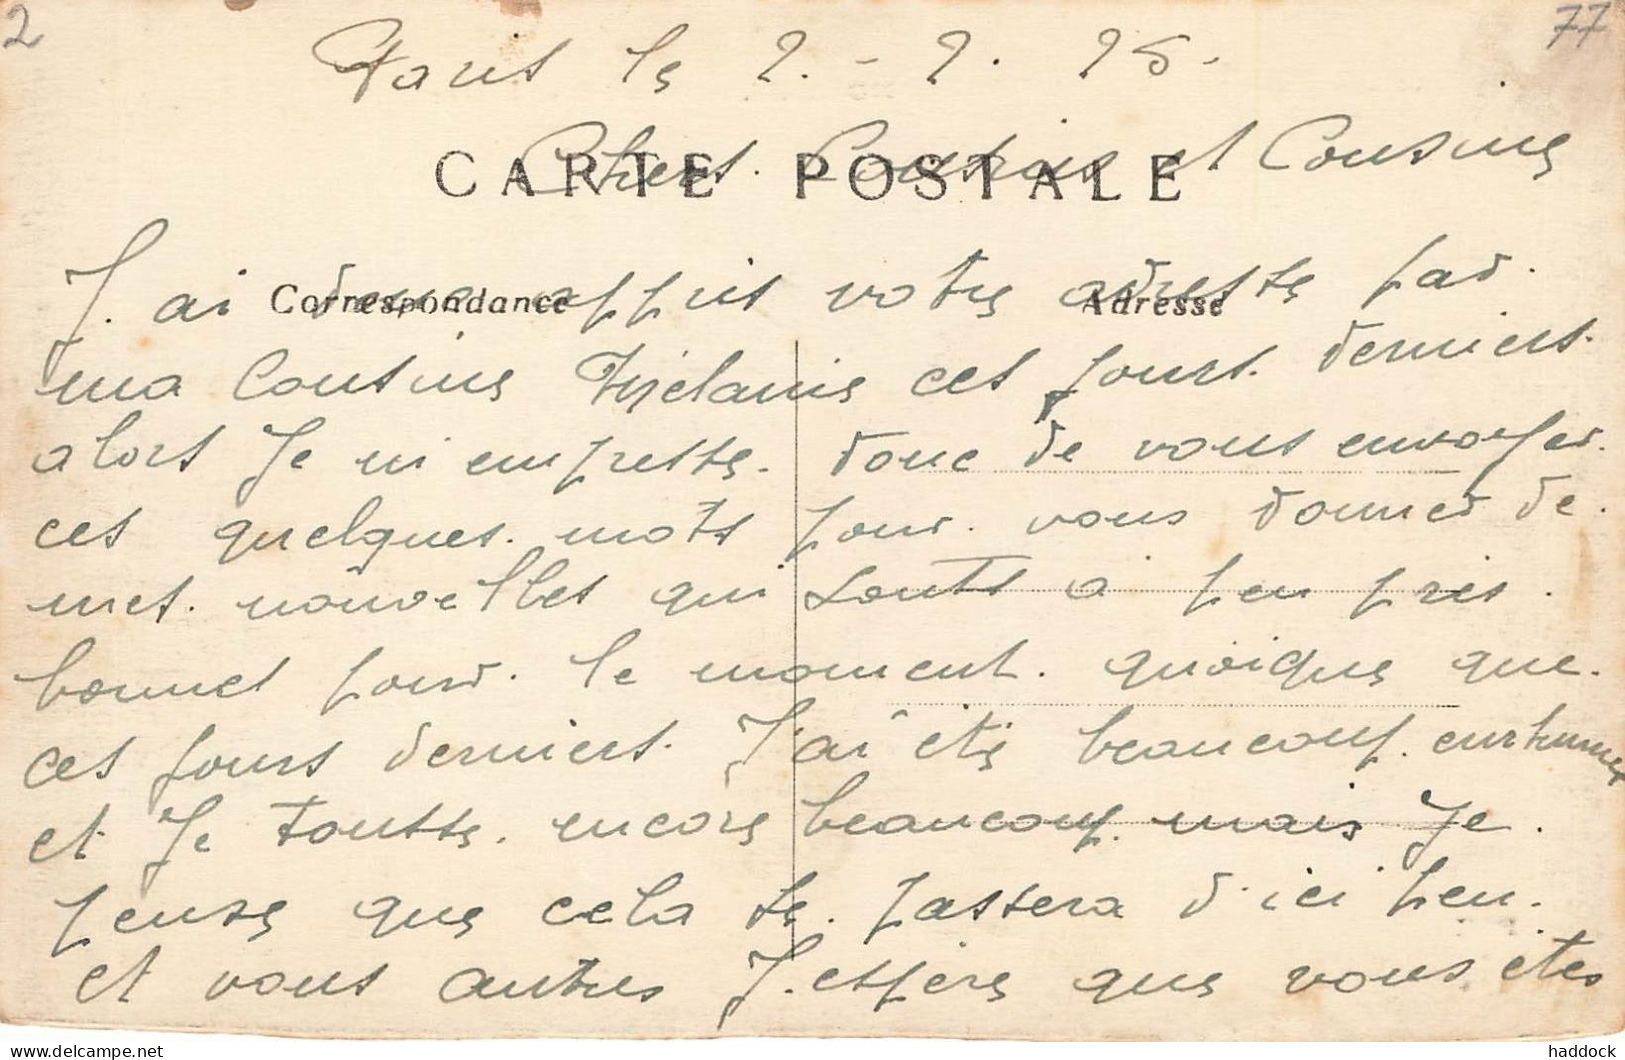 2
77
Paris le 2. - 2. 25.
CARTE POSTALE
Chers. Cousins et Cousine
Correspondance
Adresse
J. ai donc appris votre adresse par.
ma Cousine Mélanie ces jours. derniers.
alors Je m empresse. donc de vous envoyer.
ces quelques. mots pour. vous donner de.
mes. nouvelles qui sonts a peu près.
bonnes pour. le moment. quoique que.
ces jours derniers. J'ai étis beaucoup. enrhumer
et Je tousse. encore beaucoup. mais Je.
pense que cela se. passera d'ici peu.
et vous autres J.espère que vous êtes
delcampe.net
haddock